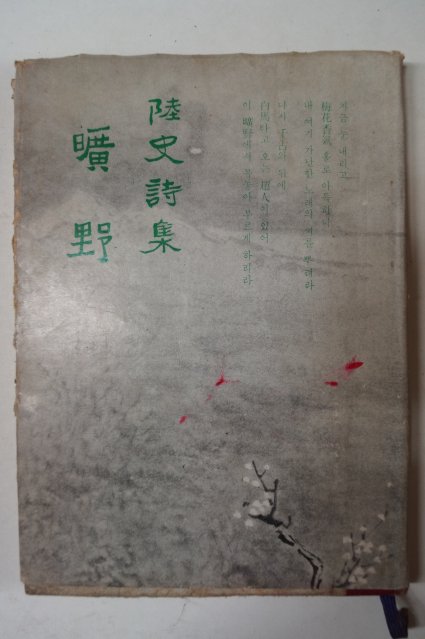 지금 눈 내리고
梅花香氣 홀로 아득하니
내 여기 가난한 노래의 씨를 뿌려라
다시 千古의 뒤에
白馬타고 오는 超人이 있어
이 曠野에서 목놓아 부르게 하리라
陸史詩集
曠野